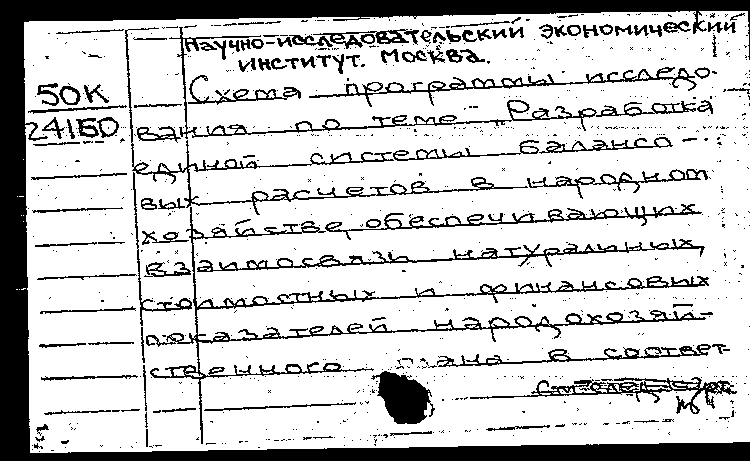 Научно-исследовательский экономический
институт. Москва.
50К
24150
Схема программы исследо-
вания по теме „Разработка
единой системы балансо-
вых расчетов в народном
хозяйстве, обеспечивающих
взаимосвязи натуральных,
стоимостных и финансовых
показателей народохозяй-
ственного плана в соответ-